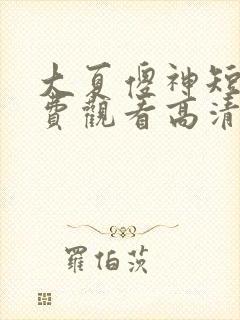 大夏傻神短
費觀看高清
羅伯茨